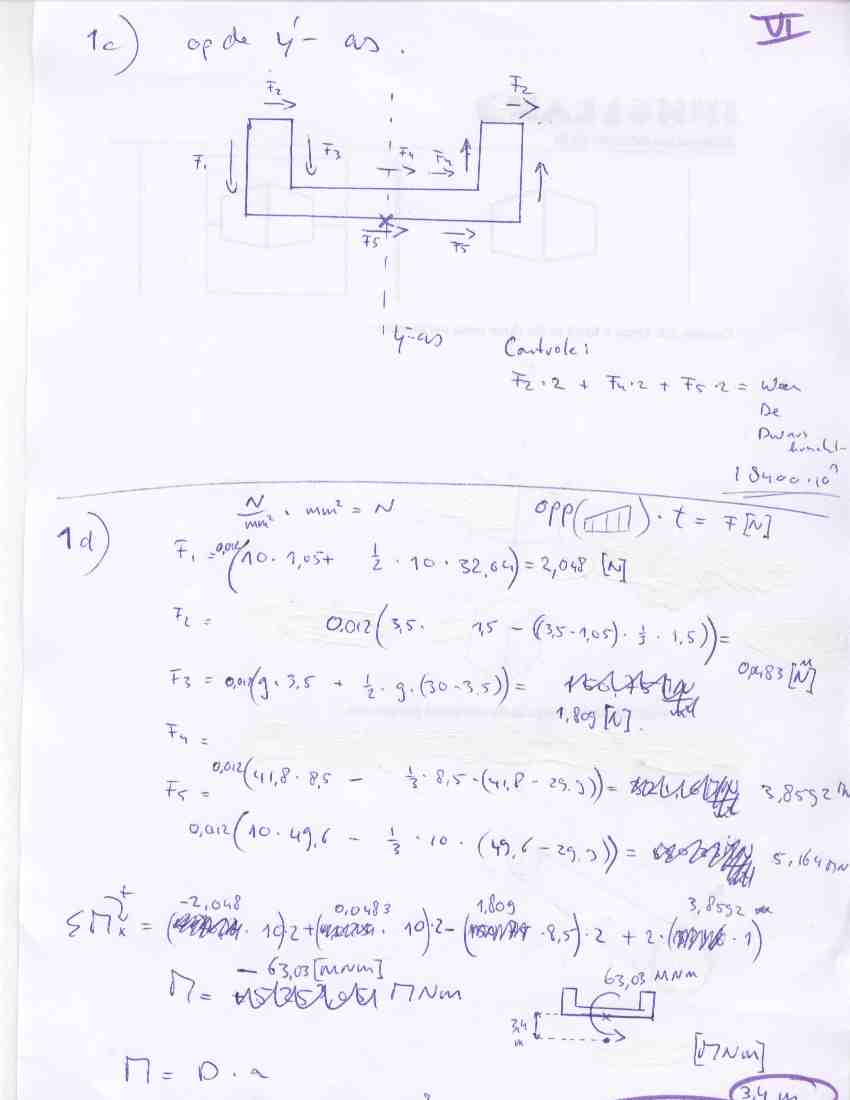 VI
1c) op de y'- as.
F2 F2
F1 F3 F4 F4
F5 F5
y'-as
Controle:
F2·2 + F4·2 + F5·2 =
De
Dwars
kracht
18400·10³
1d) N/mm² · mm² = N
opp( )· t = F [N]
F1 = 0,012(10·1,05 + 1/2·10·32,04) = 2,048 [N]
F2 = 0,012(3,5· 1,5 - ((3,5-1,05)·1/3·1,5)) =
0,0483 [MN]
F3 = 0,012(9·3,5 + 1/2·9·(30-3,5)) =
1,809 [N].
F4 =
0,012(41,8·8,5 - 1/3·8,5·(41,8-29,9)) = 3,8592
F5 =
0,012(10·49,6 - 1/3·10·(49,6-29,9)) = 5,164 MN
-2,048 0,0483 1,809 3,8592
ΣMx = ( ·10)·2+( ·10)·2-( ·8,5)·2 + 2·( ·1)
- 63,03 [MNm]
M = MNm
63,03 MNm
3,4
m
[MNm]
M = D·a
3,4 m